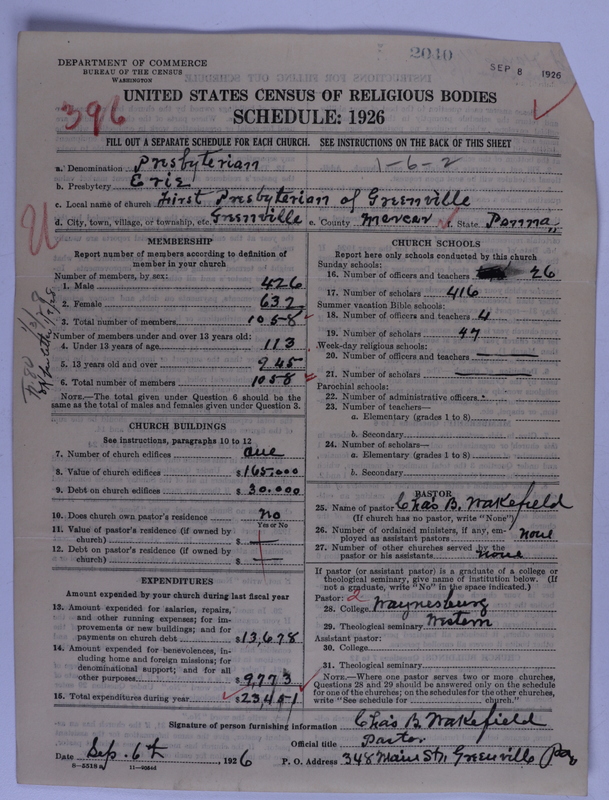 2040
DEPARTMENT OF COMMERCE
BUREAU OF THE CENSUS
WASHINGTON
SEP 8 1926
396
UNITED STATES CENSUS OF RELIGIOUS BODIES
SCHEDULE: 1926
FILL OUT A SEPARATE SCHEDULE FOR EACH CHURCH. SEE INSTRUCTIONS ON THE BACK OF THIS SHEET
1-6-2
a. Denomination Presbyterian
b. Presbytery Erie
c. Local name of church First Presbyterian of Greenville
d. City, town, village, or township, etc. Greenville e. County Mercer f. State Penna
MEMBERSHIP
Report number of members according to definition of member in your church
Number of members, by sex:
1. Male 426
2. Female 632
3. Total number of members 1058
Number of members under and over 13 years old:
4. Under 13 years of age 113
5. 13 years old and over 945
6. Total number of members 1058
NOTE.—The total given under Question 6 should be the same as the total of males and females given under Question 3.
CHURCH BUILDINGS
See instructions, paragraphs 10 to 12
7. Number of church edifices one
8. Value of church edifices $165.000
9. Debt on church edifices $30.000
10. Does church own pastor's residence No
Yes or No
11. Value of pastor's residence (if owned by church) $ —
12. Debt on pastor's residence (if owned by church) $ —
EXPENDITURES
Amount expended by your church during last fiscal year
13. Amount expended for salaries, repairs, and other running expenses; for improvements or new buildings; and for payments on church debt $13,678
14. Amount expended for benevolences, including home and foreign missions; for denominational support; and for all other purposes $9773
15. Total expenditures during year $23451
CHURCH SCHOOLS
Report here only schools conducted by this church
Sunday schools:
16. Number of officers and teachers 26
17. Number of scholars 416
Summer vacation Bible schools:
18. Number of officers and teachers 4
19. Number of scholars 47
Week-day religious schools:
20. Number of officers and teachers —
21. Number of scholars —
Parochial schools:
22. Number of administrative officers
23. Number of teachers—
a. Elementary (grades 1 to 8)
b. Secondary
24. Number of scholars—
a. Elementary (grades 1 to 8)
b. Secondary
PASTOR
25. Name of pastor Chas B. Wakefield
(If church has no pastor, write "None")
26. Number of ordained ministers, if any, employed as assistant pastors none
27. Number of other churches served by the pastor or his assistants none
If pastor (or assistant pastor) is a graduate of a college or theological seminary, give name of institution below. (If not a graduate, write "No" in the space indicated.)
Pastor:
28. College Waynesburg
29. Theological seminary Western
Assistant pastor:
30. College
31. Theological seminary
NOTE.—Where one pastor serves two or more churches, Questions 28 and 29 should be answered only on the schedule for one of the churches; on the schedules for the other churches, write "See schedule for church."
Signature of person furnishing information Chas B. Wakefield
Official title Pastor
Date Sep. 6th, 1926 P. O. Address 348 Main St., Greenville Pa
8-5518a 11-9064d